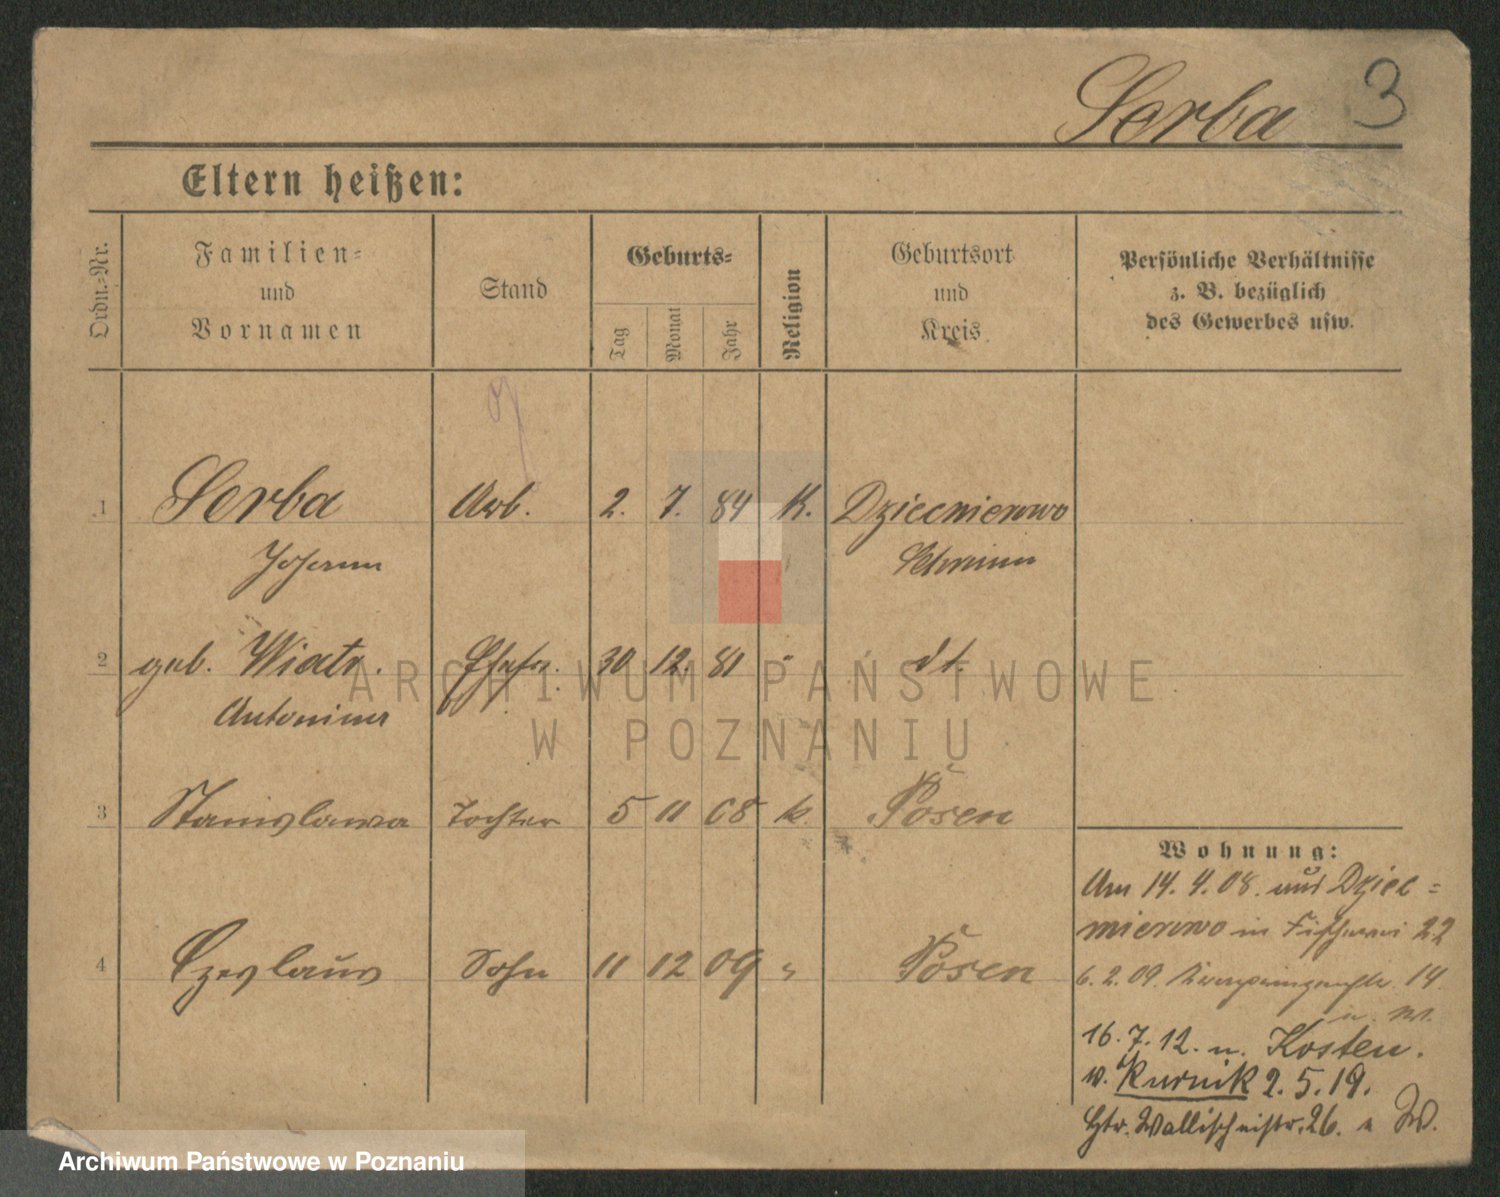 Serba 3
Eltern heißen:
Ordn.-Nr.
Familien-
und
Vornamen
Stand
Geburts-
Tag
Monat
Jahr
Religion
Geburtsort
und
Kreis
Persönliche Verhältnisse
z. B. bezüglich
des Gewerbes usw.
1 Serba Arb. 2. 7. 84 K. Dziecmierowo
Johann Schrimm
2 geb. Wiatr. Ehefr. 30 12. 81 " dt.
Antonina
3 Stanislawa Tochter 5 11 08 k. Posen
4 Czeslaus Sohn 11 12 09 " Posen
Wohnung:
Am 14. 4. 08. aus Dziec=
mierowo in Fischerei 22
6. 2. 09. 14
16. 7. 12. n. Kosten.
v. Kurnik 2. 5. 19.
Wallischeistr. 26.
ARCHIWUM PAŃSTWOWE
W POZNANIU
Archiwum Państwowe w Poznaniu